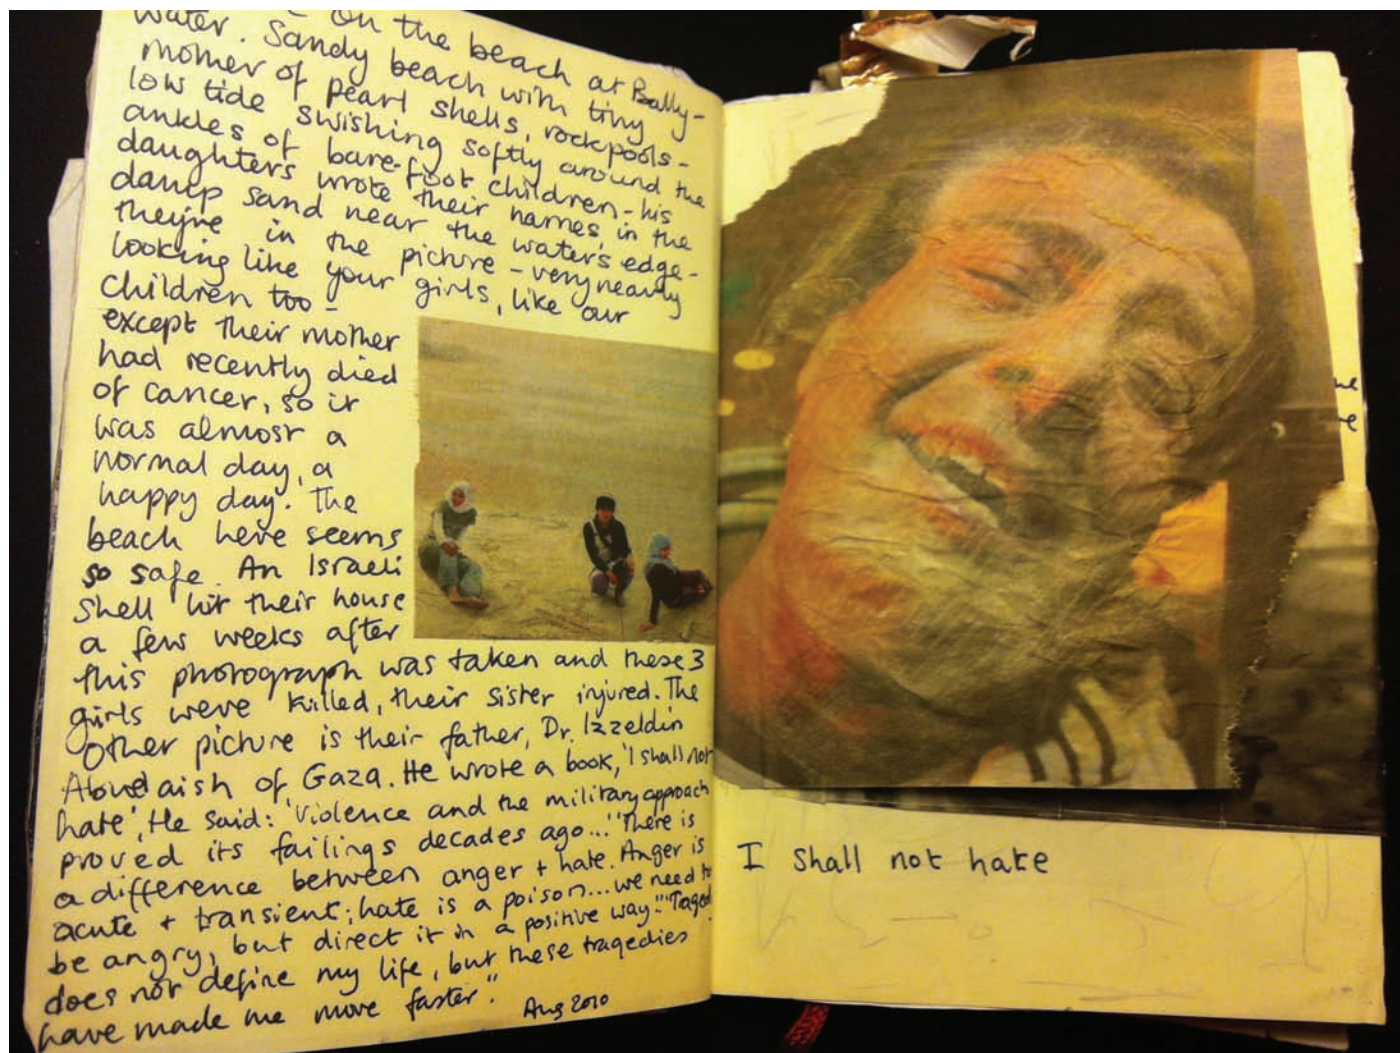 on the beach at Bally-
water. Sandy beach with tiny
mother of pearl shells, rockpools -
low tide swishing softly around the
ankles of bare-foot children - his
daughters wrote their names in the
damp sand near the water's edge -
they're in the picture - very nearly
looking like your girls, like our
children too -
except their mother
had recently died
of cancer, so it
was almost a
normal day, a
happy day. The
beach here seems
so safe. An Israeli
shell hit their house
a few weeks after
this photograph was taken and these 3
girls were killed, their sister injured. The
other picture is their father, Dr. Izzeldin
Abuelaish of Gaza. He wrote a book, 'I shall not
hate', He said: 'Violence and the military approach
proved its failings decades ago..." "There is
a difference between anger + hate. Anger is
acute + transient; hate is a poison... we need to
be angry, but direct it in a positive way." "Traged
does not define my life, but these tragedies
have made me move faster."
Aug 2010
I shall not hate